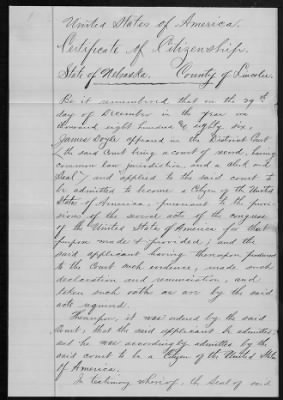 United States of America.
Certificate of Citizenship.
State of Nebraska. County of Lincoln.
Be it remembered, that on the 29th
day of December in the year one
thousand eight hundred & eighty six,
James Doyle appeared in the District Court
(the said Court being a court of record, having
common law jurisdiction, and a clerk and
Seal) and applied to the said court to
be admitted to become a Citizen of the United
States of America, pursuant to the provi-
sions of the several acts of the congress
of the United States of America for that
purpose made & provided; and the
said applicant having thereupon produced
to the Court such evidence, made such
declaration and renunciation, and
taken such oath as are by the said
acts required.
Thereupon, it was ordered by the said
Court, that the said applicant be admitted,
and he was accordingly admitted by the
said court to be a Citizen of the United States
of America.
In testimony whereof, the seal of said